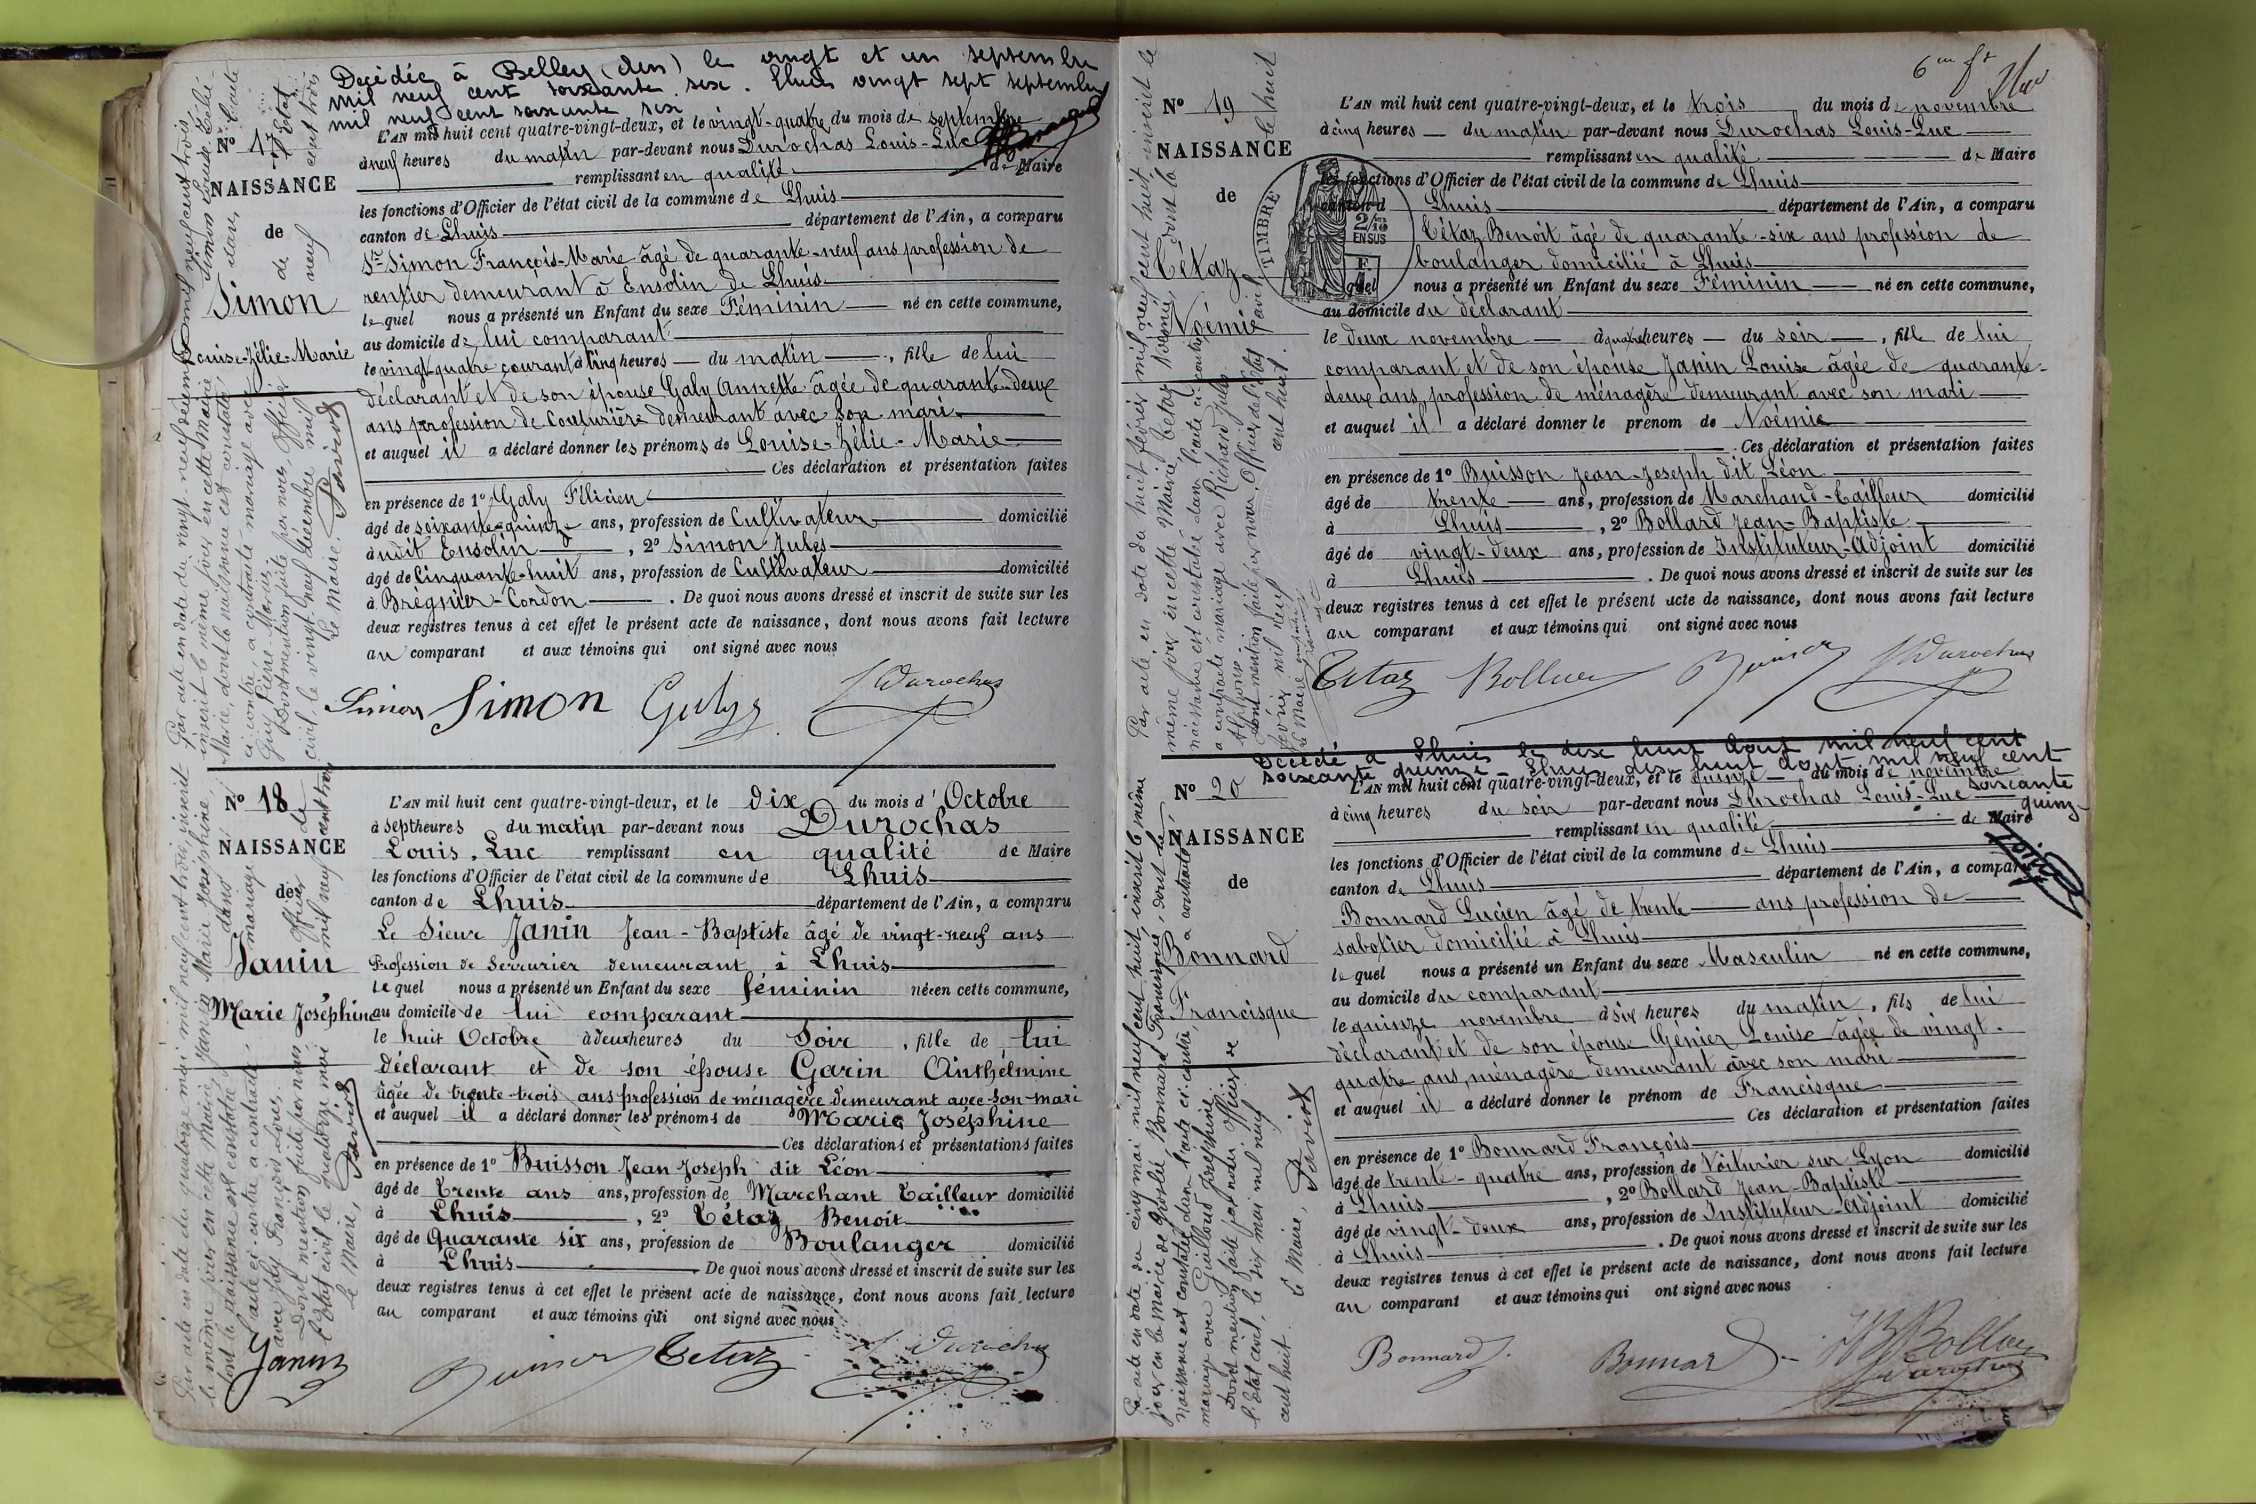 Décédée à Belley (Ain) le vingt et un septembre
mil neuf cent soixante six. Lhuis vingt sept septembre
mil neuf cent soixante six
N° 17
NAISSANCE
de
Simon
Louise-Zélie-Marie
L'AN mil huit cent quatre-vingt-deux, et le vingt-quatre du mois de septembre
à neuf heures du matin par-devant nous Durochas Louis-Luc
remplissant en qualité de Maire
les fonctions d'Officier de l'état civil de la commune de Lhuis
canton de Lhuis département de l'Ain, a comparu
Sre Simon François-Marie âgé de quarante-neuf ans profession de
rentier demeurant à Ensolin de Lhuis
lequel nous a présenté un Enfant du sexe Féminin né en cette commune,
au domicile de lui comparant
le vingt-quatre courant à cinq heures du matin, fille de lui
déclarant et de son épouse Galy Annette âgée de quarante-deux
ans profession de Couturière demeurant avec son mari
et auquel il a déclaré donner les prénoms de Louise-Zélie-Marie
Ces déclaration et présentation faites
en présence de 1° Galy Félicien
âgé de soixante-quinze ans, profession de Cultivateur domicilié
à udit Ensolin, 2° Simon Jules
âgé de Cinquante-huit ans, profession de Cultivateur domicilié
à Brégnier-Cordon. De quoi nous avons dressé et inscrit de suite sur les
deux registres tenus à cet effet le présent acte de naissance, dont nous avons fait lecture
au comparant et aux témoins qui ont signé avec nous
Simon Simon Galy Durochas
Par acte en date du vingt-neuf décembre mil neuf cent trois
inscrit le même jour en cette Mairie Simon Louise Zélie
Marie, dont la naissance est constatée dans l'acte
ci contre, a contracté mariage avec
Guy Pierre Marius
Dont mention faite par nous Officier de l'Etat
civil le vingt-neuf décembre mil neuf cent trois
Le Maire. Serviox
N° 18
NAISSANCE
de
Janin
Marie Joséphine
L'AN mil huit cent quatre-vingt-deux, et le dix du mois d'Octobre
à sept heures du matin par-devant nous Durochas
Louis, Luc remplissant en qualité de Maire
les fonctions d'Officier de l'état civil de la commune de Lhuis
canton de Lhuis département de l'Ain, a comparu
Le Sieur Janin Jean-Baptiste âgé de vingt-neuf ans
Profession de Serrurier demeurant à Lhuis
lequel nous a présenté un Enfant du sexe féminin née en cette commune,
au domicile de lui comparant
le huit Octobre à deux heures du Soir, fille de lui
déclarant et de son épouse Garin Anthelmine
âgée de trente-trois ans profession de ménagère demeurant avec son mari
et auquel il a déclaré donner les prénoms de Marie Joséphine
Ces déclarations et présentations faites
en présence de 1° Buisson Jean Joseph dit Léon
âgé de Trente ans ans, profession de Marchant Tailleur domicilié
à Lhuis, 2° Tétaz Benoit
âgé de Quarante six ans, profession de Boulanger domicilié
à Lhuis De quoi nous avons dressé et inscrit de suite sur les
deux registres tenus à cet effet le présent acte de naissance, dont nous avons fait lecture
au comparant et aux témoins qui ont signé avec nous
Janin Buisson Tetaz Durochas
Par acte en date du quatorze mai mil neuf cent trois inscrit
le même jour en cette Mairie Janin Marie Joséphine
dont la naissance est constatée dans
l'acte ci contre a contracté mariage
avec Joly François Louis
Dont mention faite par nous Officier de
l'Etat civil le quatorze mai mil neuf cent trois
Le Maire, Serviox
6me ft
N° 19
NAISSANCE
de
Tétaz
Noémie
TIMBRE
2/10
EN SUS
L'AN mil huit cent quatre-vingt-deux, et le trois du mois de novembre
à cinq heures du matin par-devant nous Durochas Louis-Luc
remplissant en qualité de Maire
les fonctions d'Officier de l'état civil de la commune de Lhuis
canton d Lhuis département de l'Ain, a comparu
Tétaz Benoît âgé de quarante-six ans profession de
boulanger domicilié à Lhuis
lequel nous a présenté un Enfant du sexe Féminin né en cette commune,
au domicile du déclarant
le deux novembre à quatre heures du soir, fille de lui
comparant et de son épouse Janin Louise âgée de quarante-
deux ans, profession de ménagère demeurant avec son mari
et auquel il a déclaré donner le prénom de Noémie
Ces déclaration et présentation faites
en présence de 1° Buisson Jean-Joseph dit Léon
âgé de trente ans, profession de Marchand-Tailleur domicilié
à Lhuis, 2° Bollard Jean-Baptiste
âgé de vingt-deux ans, profession de Instituteur-Adjoint domicilié
à Lhuis. De quoi nous avons dressé et inscrit de suite sur les
deux registres tenus à cet effet le présent acte de naissance, dont nous avons fait lecture
au comparant et aux témoins qui ont signé avec nous
Tetaz Bollard Buisson Durochas
Par acte en date du huit février mil neuf cent huit inscrit le
même jour en cette Mairie, Tétaz Noémie dont la
naissance est constatée dans l'acte ci contre
a contracté mariage avec Richard Jules
Alphonse
Dont mention faite par nous Officier de l'Etat civil le huit
février mil neuf cent huit.
Le Maire
Décédé à Lhuis le dix huit août mil neuf cent
soixante quinze - Lhuis dix-huit août mil neuf cent
soixante quinze
N° 20
NAISSANCE
de
Bonnard
Francisque
L'AN mil huit cent quatre-vingt-deux, et le quinze du mois de novembre
à cinq heures du soir par-devant nous Durochas Louis-Luc
remplissant en qualité de Maire
les fonctions d'Officier de l'état civil de la commune de Lhuis
canton de Lhuis département de l'Ain, a comparu
Bonnard Lucien âgé de trente ans profession de
sabotier domicilié à Lhuis
lequel nous a présenté un Enfant du sexe Masculin né en cette commune,
au domicile du comparant
le quinze novembre à six heures du matin, fils de lui
déclarant et de son épouse Génier Louise âgée de vingt-
quatre ans, ménagère demeurant avec son mari
et auquel il a déclaré donner le prénom de Francisque
Ces déclaration et présentation faites
en présence de 1° Bonnard François
âgé de trente-quatre ans, profession de Voiturier sur Lyon domicilié
à Lhuis, 2° Bollard Jean-Baptiste
âgé de vingt-deux ans, profession de Instituteur-Adjoint domicilié
à Lhuis. De quoi nous avons dressé et inscrit de suite sur les
deux registres tenus à cet effet le présent acte de naissance, dont nous avons fait lecture
au comparant et aux témoins qui ont signé avec nous
Bonnard Bonnard JB Bollard
Durochas
Par acte en date du cinq mai mil neuf cent huit, inscrit le même
jour en la Mairie de Bonnard Francisque, dont la
naissance est constatée dans l'acte ci-contre, a contracté
mariage avec Guilloud Joséphine
Dont mention faite par nous Officier de
l'Etat civil, le six mai mil neuf
cent huit. Le Maire, Serviox